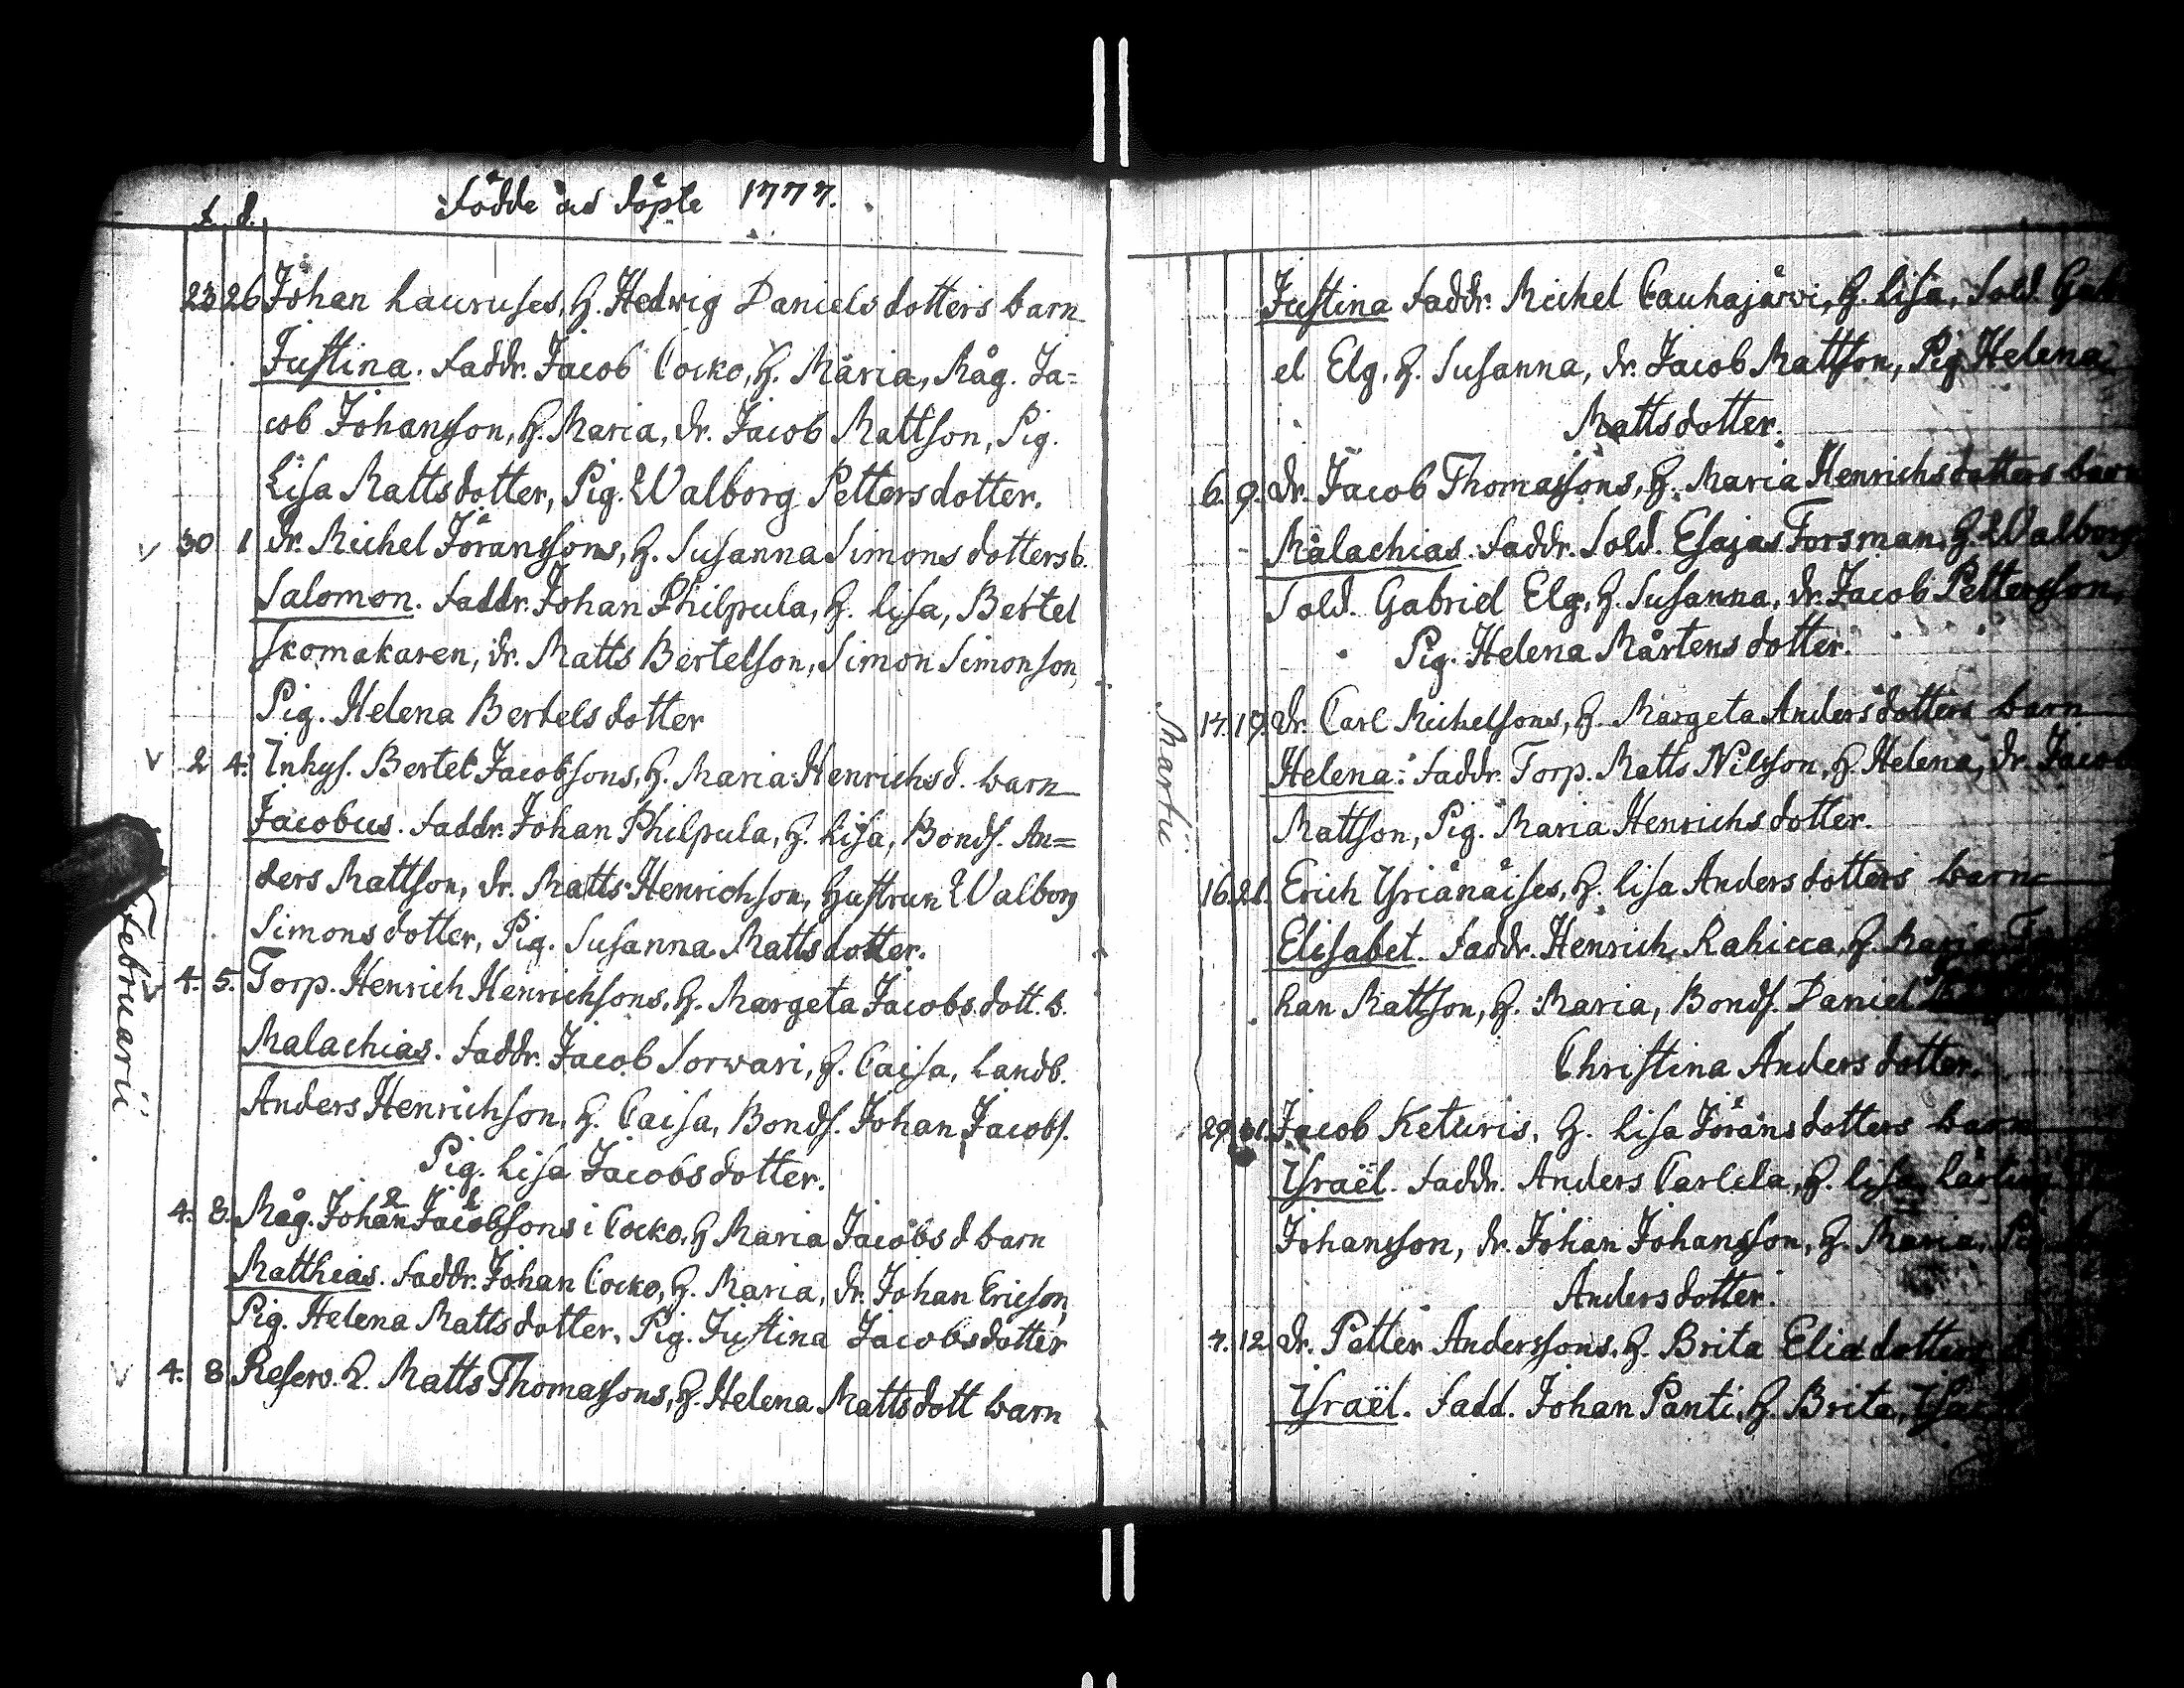 f. d. Födde äs döpte 1777.
23 26 Johan Lauruses, H. Hedwig Daniels dotters barn
Justina. Faddr. Jacob Cocko, H. Maria, Måg. Ja=
cob Johansson, H. Maria, dr. Jacob Mattson, Pig.
Lisa Matts dotter, Pig. Walborg Petters dotter.
30 1 dr. Michel Jöranssons, H. Susanna Simons dotters b.
Salomon. Faddr. Johan Philpula, H. Lisa, Bertel
Skomakaren, dr. Matts Bertelson, Simon Simonson,
Pig. Helena Bertels dotter
Februarii
2 4. Inhys. Bertel Jacobsons, H. Maria Henrichs d. barn
Jacobus. Faddr. Johan Philpula, H. Lisa, Bonds. An=
ders Mattson, dr. Matts Henrichson, Hustrun Walborg
Simons dotter, Pig. Susanna Matts dotter.
4. 5. Torp. Henrich Henrichsons, H. Margeta Jacobs dott. b.
Malachias. Faddr. Jacob Sorwari, H. Caisa, Landb.
Anders Henrichson, H. Caisa, Bonds. Johan Jacobs.
Pig. Lisa Jacobs dotter.
4. 8. Måg. Johan 2 Jacobsons 1 i Cocko, H Maria Jacobs d barn
Matthias. Faddr. Johan Cocko, H. Maria, dr. Johan Ericson,
Pig. Helena Matts dotter, Pig. Justina Jacobs dotter
4. 8. Reserv. K. Matts Thomassons, H. Helena Matts dott barn
Justina Faddr. Michel Cauhajärvi, H. Lisa, Sold.
el Elg, H. Susanna, dr. Jacob Mattson, Pig Helena
Matts dotter.
Martii
6. 9. Dr. Jacob Thomassons, H. Maria Henrichs dotters barn
Malachias. Faddr. Sold. Esajas Forsman, H. Walborg
Sold. Gabriel Elg, H. Susanna, dr. Jacob Pettersson,
Pig. Helena Mårtens dotter.
17. 19. Dr. Carl Michelsons, H. Margeta Anders dotters barn
Helena. Faddr. Torp. Matts Nilsson, H. Helena, dr. Jacob
Mattson, Pig. Maria Henrichs dotter.
16. 21. Erich Yrjänäises, H. Lisa Anders dotters barn
Elisabet. Faddr. Henrich Rahicca, H. Maria
han Mattson, H. Maria, Bonds. Daniel
Christina Anders dotter.
29 31. Jacob Keturis, H. Lisa Jörans dotters barn
Israël. Faddr. Anders Carlela, H. Lisa,
Johansson, dr. Johan Johansson, H. Maria,
Anders dotter.
7. 12 Dr. Petter Anderssons, H. Brita Elias dotters
Israël. Fadd. Johan Panti, H. Brita,